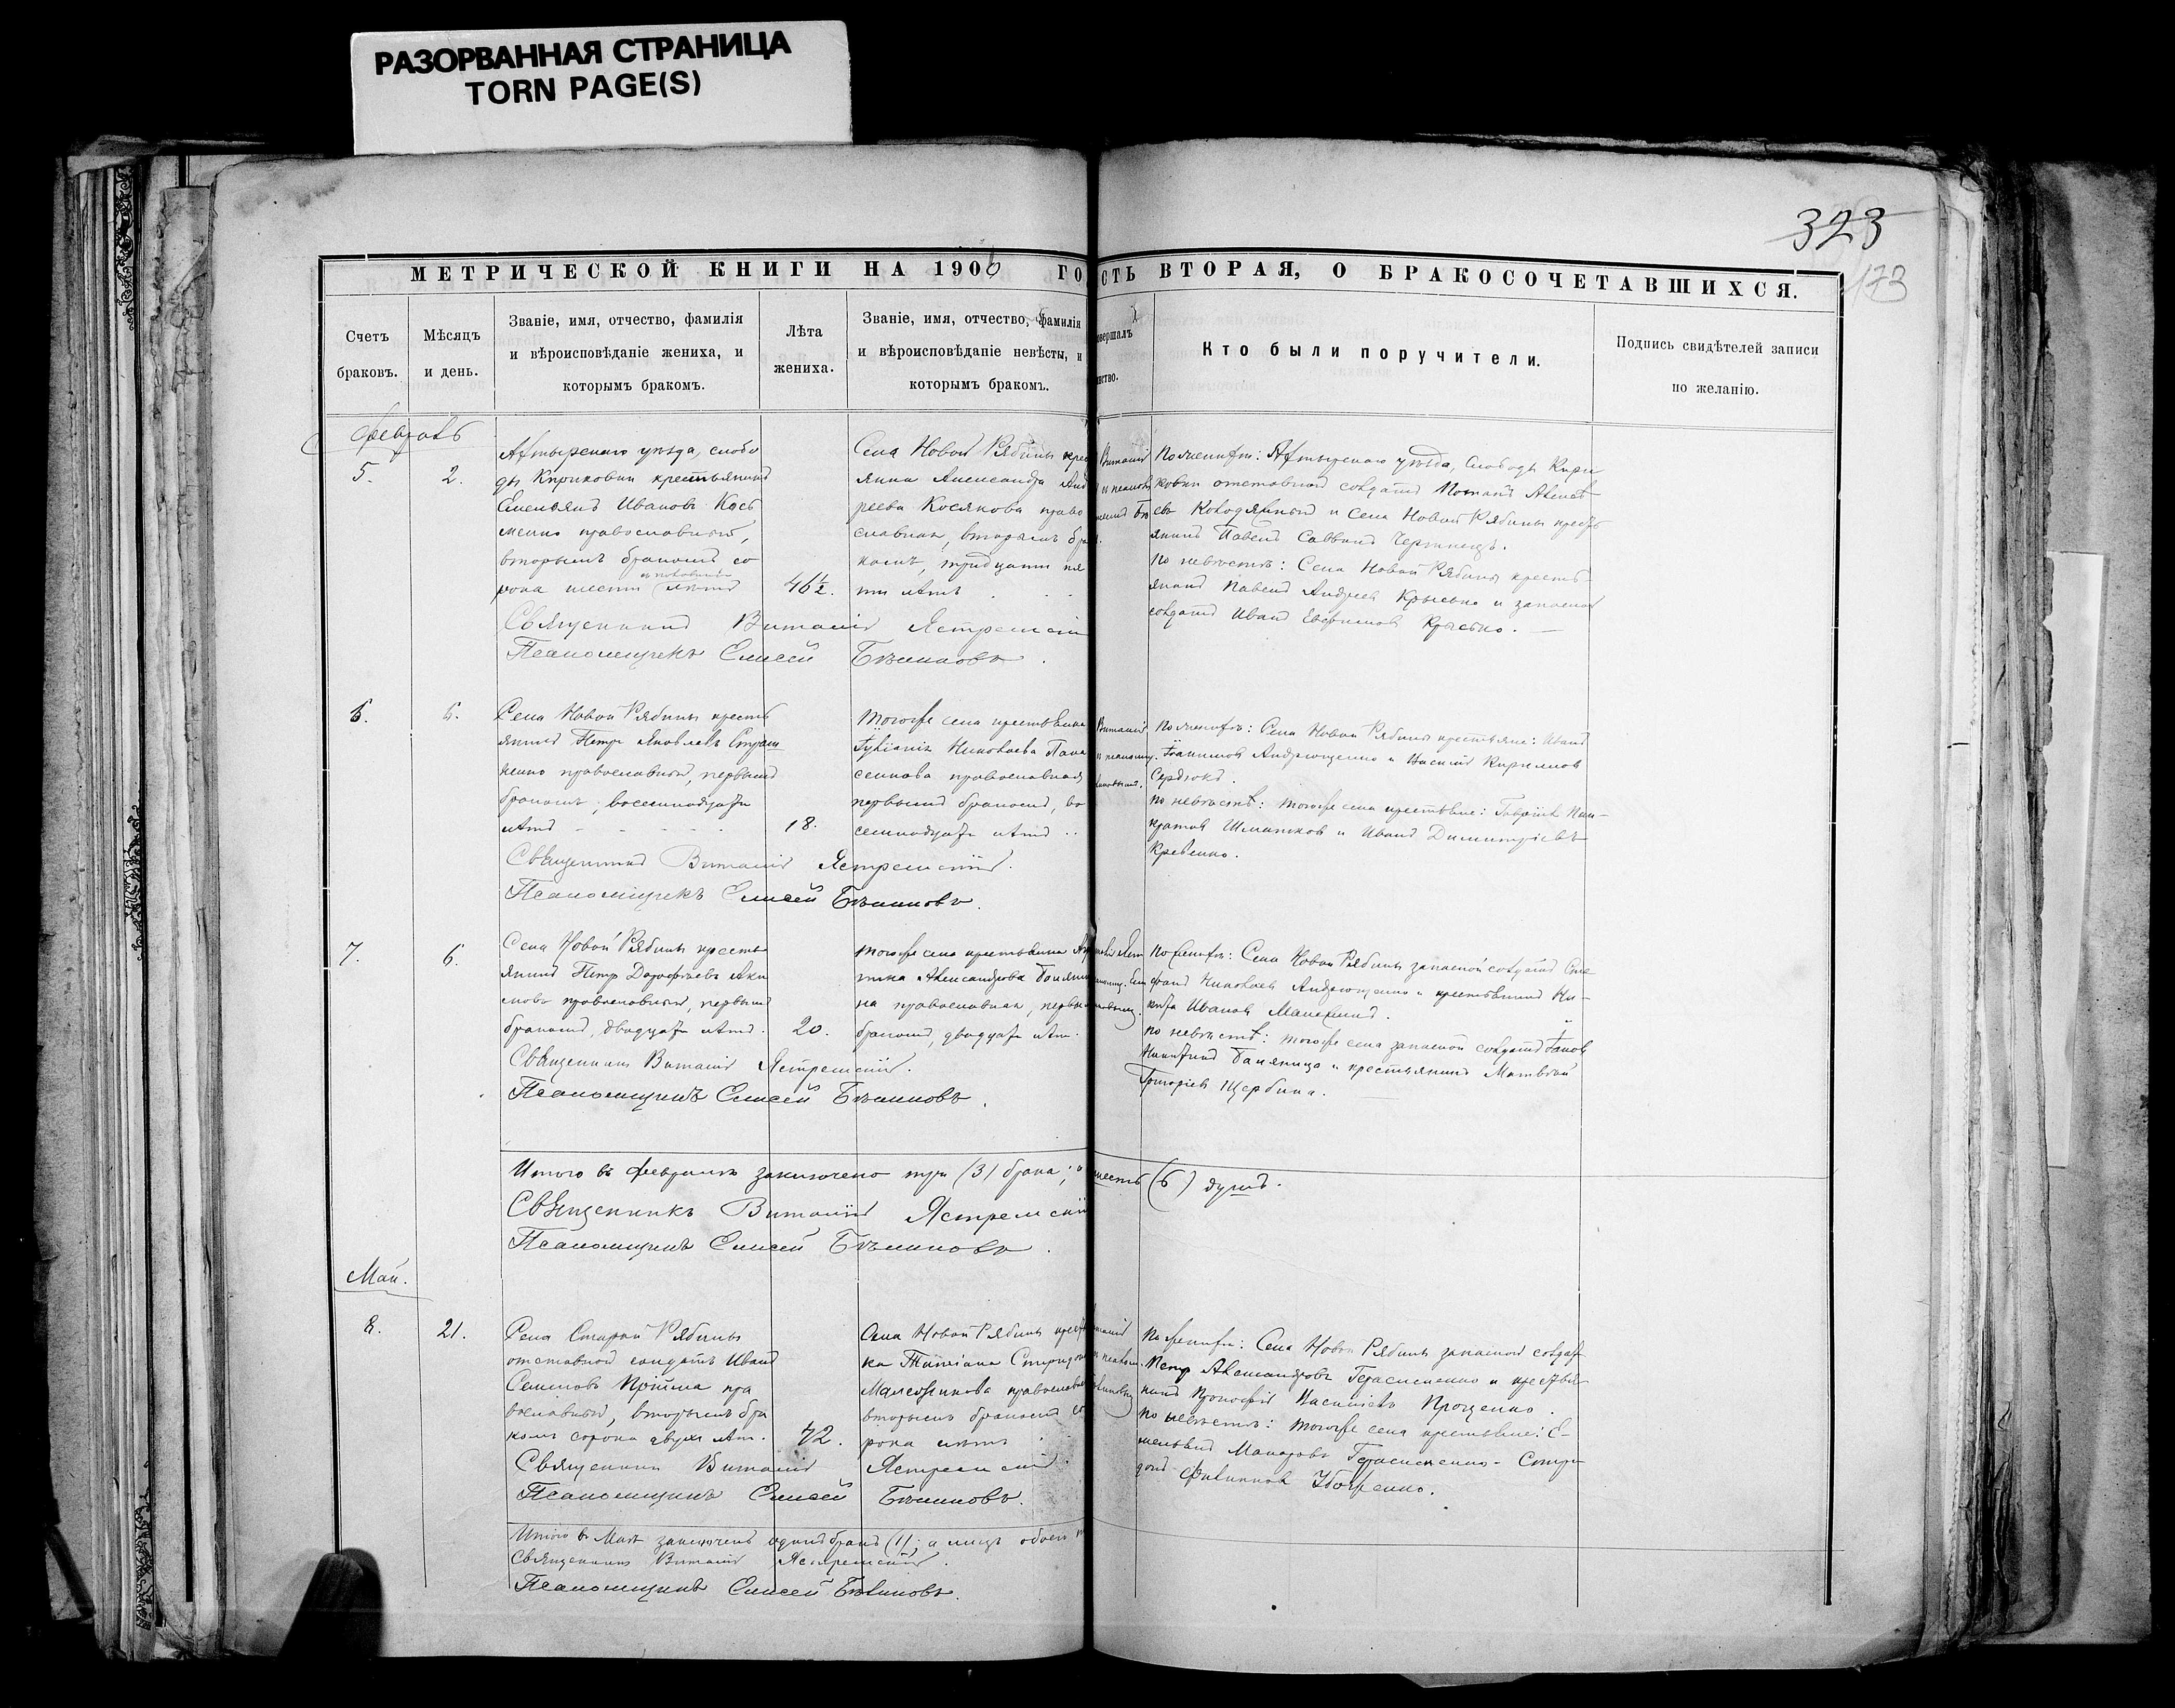 РАЗОРВАННАЯ СТРАНИЦА
TORN PAGE(S)
323
173
МЕТРИЧЕСКОЙ КНИГИ НА 1906 ГО
СТЬ ВТОРАЯ, О БРАКОСОЧЕТАВШИХСЯ.
Счетъ
браковъ.
Мѣсяцъ
и день.
Званіе, имя, отчество, фамилія
и вѣроисповѣданіе жениха, и
которымъ бракомъ.
Лѣта
жениха.
Званіе, имя, отчество, фамилія
и вѣроисповѣданіе невѣсты, и
которымъ бракомъ.
овершалъ
нство.
Кто были поручители.
Подпись свидѣтелей записи
по желанію.
Февраль
5.
2.
Ахтырскаго уѣзда, слобо
ды Кириковки крестьянинъ
Емельянъ Ивановъ Кось
менко православный,
вторымъ бракомъ со
рока шести съ половиною лѣтъ
46½.
Села Новой Рябины крес
янка Александра Анд
реева Косякова право
славная, вторымъ бра
комъ, тридцати пя
ти лѣтъ
Виталій
и псалом
По женихѣ: Ахтырскаго уѣзда, слободы Кири
ковки отставной солдатъ Романъ Алексѣ
евъ Колодяжный и села Новой Рябины кресть
янинъ Павелъ Саввинъ
По невѣстѣ: Села Новой Рябины кресть
янинъ Павелъ Андреевъ Крысько и запасной
солдатъ Иванъ Евфимовъ Крысько.
Священникъ Виталій Ястремскій
Псаломщикъ Елисей Бѣликовъ.
6.
5.
Села Новой Рябины кресть
янинъ Петръ Яковлевъ
православный, первымъ
бракомъ, восемнадцати
лѣтъ
18.
Тогоже села крестьянка
Іуліанія Николаева Пана
сенкова православная
первымъ бракомъ, во
семнадцати лѣтъ
Виталій
и псаломщ.
По женихѣ: Села Новой Рябины крестьяне: Иванъ
Іоанниковъ Андрющенко и Василій Кирилловъ
Сердюкъ.
По невѣстѣ: тогоже села крестьяне: Гавріилъ Пан-
кратовъ Шматковъ и Иванъ Димитріевъ
Кревенко.
Священникъ Виталій Ястремскій.
Псаломщикъ Елисей Бѣликовъ.
7.
6.
Села Новой Рябины кресть
янинъ Петръ Дорофѣевъ Аки
мовъ православный, первымъ
бракомъ, двадцати лѣтъ.
20.
тогоже села крестьянка
Александрова
на православная, первым
бракомъ, двадцати лѣтъ.
По женихѣ: Села Новой Рябины запасной солдатъ Сте
фанъ Николаевъ Андрющенко и крестьянинъ Ни-
кита Ивановъ
По невѣстѣ: тогоже села запасной солдатъ Іаковъ
Никитинъ и крестьянинъ Матвѣй
Григоріевъ Щербина.
Священникъ Виталій Ястремскій.
Псаломщикъ Елисей Бѣликовъ.
Итого въ Февралѣ заключено три (3) брака; а
шесть (6) душъ.
Священникъ Виталій Ястремскій
Псаломщикъ Елисей Бѣликовъ.
Май.
8.
21.
Села Старой Рябины
отставной солдатъ Иванъ
Семеновъ Прійма пра
вославный, вторымъ бра
комъ сорока двухъ лѣтъ.
42.
Села Новой Рябины крест
ка Татіана Спиридон
православн
вторымъ бракомъ со
рока лѣтъ
По женихѣ: Села Новой Рябины запасной солдатъ
Петръ Александровъ Герасименко и крестья
нинъ Прокофій Васильевъ Проценко.
По невѣстѣ: тогоже села крестьяне: Е-
мельянъ Макаровъ Герасименко Спири
донъ Филипповъ Убоженко.
Священникъ Виталій Ястремскій.
Псаломщикъ Елисей Бѣликовъ.
Итого въ Маѣ заключенъ одинъ бракъ (1); а лицъ обоего
Священникъ Виталій Ястремскій.
Псаломщикъ Елисей Бѣликовъ.